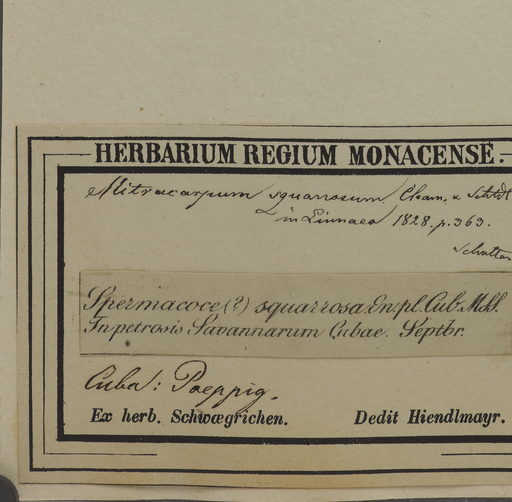 HERBARIUM REGIUM MONACENSE.
Mitracarpum squarrosum Cham. &
in Linnaea 1828. p. 363.
Spermacoce (?) squarrosa En. pl. Cub. MSS.
In petrosis Savannarum Cubae. Septbr.
Cuba: Poeppig.
Ex herb. Schwægrichen. Dedit Hiendlmayr.